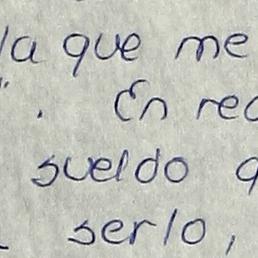 la que me
". En rea
sueldo q
serlo,